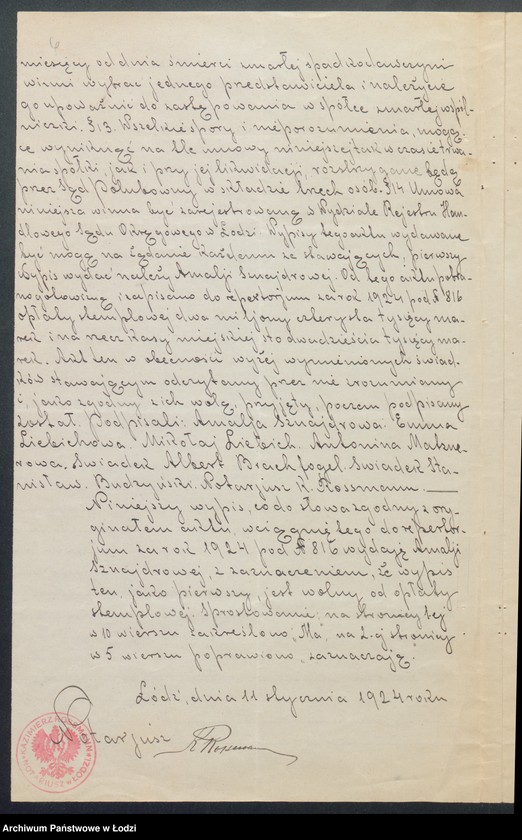 miesięcy od dnia śmierci zmarłej spadkodawczyni
winni wybrać jednego przedstawiciela i należycie
go upoważnić do zastępowania w spółce zmarłej wspól-
niczki. § 13. Wszelkie spory i nieporozumienia, mogą-
ce wyniknąć na tle umowy niniejszej tak w czasie trwa-
nia spółki, jak i przy jej likwidacji, rozstrzygane będą
przez Sąd Polubowny w składzie trzech osób. § 14 Umowa
niniejsza winna być zarejestrowaną w Wydziale Rejestru Han-
dlowego Sądu Okręgowego w Łodzi. Wypisy tego aktu wydawane
być mogą na żądanie każdemu ze stawających, pierwszy
wypis wydać należy Amalji Sznajdrowej. Od tego aktu pobra-
no gotowizną i zapisano do repertorjum za rok 1924 pod № 816
opłaty stemplowej dwa miljony czterysta tysięcy ma-
rek i na rzecz kasy miejskiej sto dwadzieścia tysięcy ma-
rek. Akt ten w obecności wyżej wymienionych świad-
ków stawającym odczytany przez nie zrozumiany
i, jako zgodny z ich wolą, przyjęty, poczem podpisany
został. Podpisali: Amalja Sznajdrowa. Emma
Liebichowa. Mikołaj Liebich. Antonina Makne-
rowa. Świadek Albert Brachfogel. Świadek Sta-
nisław Budzyński. Notarjusz K. Rossmann.
Niniejszy wypis, co do słowa zgodny z ory-
ginałem aktu, wciągniętego do repertor-
jum za rok 1924 pod № 816 wydaję Amalji
Sznajdrowej, z zaznaczeniem, że wypis
ten, jako pierwszy, jest wolny od opłaty
stemplowej. Sprostowanie: na stronicy tej
w 10 wierszu zakreślono "Ma", na 2-ej stronicy
w 5 wierszu poprawiono "zaznaczają"
Łódź, dnia 11 stycznia 1924 roku
Notarjusz K Rossman
Archiwum Państwowe w Łodzi